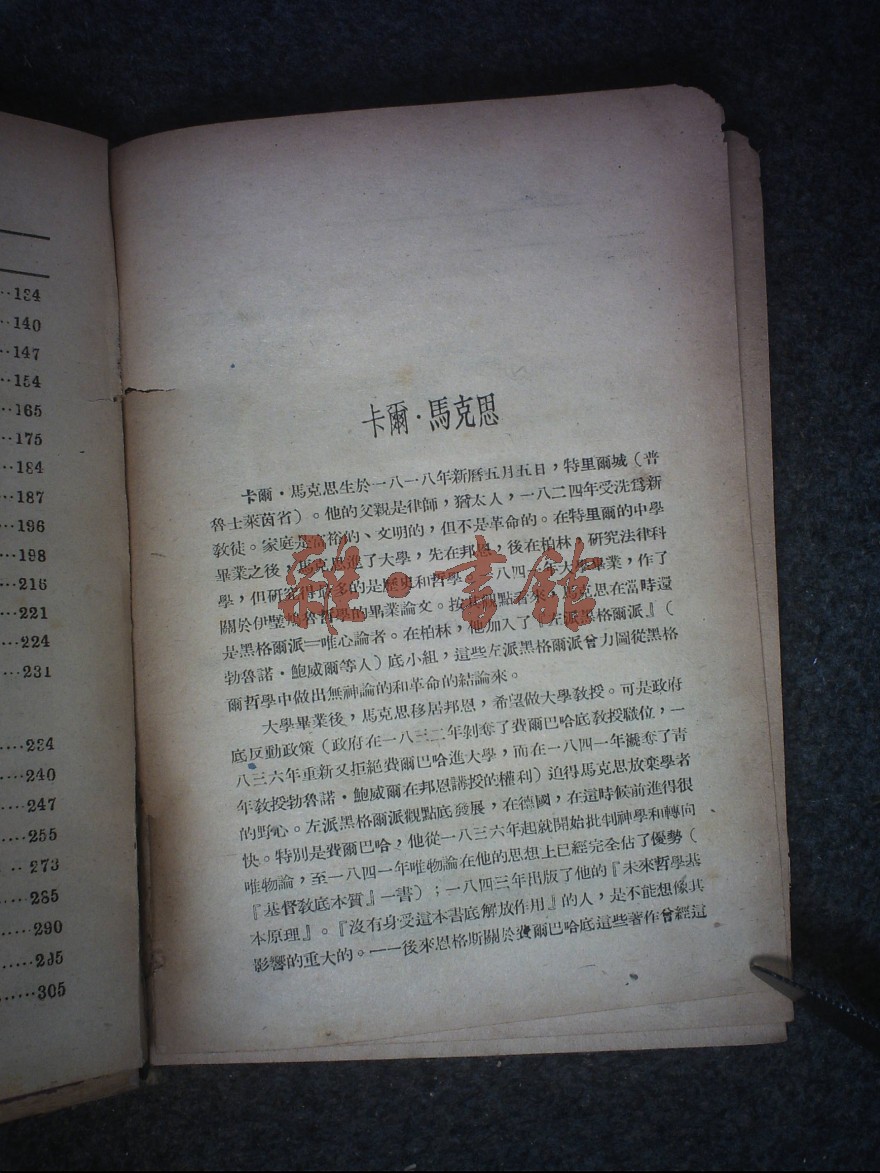 ··134
··140
··147
··154
··165
··175
··184
··187
··196
··198
··216
··221
··224
··231
····234
····240
····247
····255
·· 273
·····285
·····290
·····295
······305
卡爾·馬克思
卡爾·馬克思生於一八一八年新曆五月五日，特里爾城（普
魯士萊茵省）。他的父親是律師，猶太人，一八二四年受洗爲新
教徒。家庭是富裕的、文明的，但不是革命的。在特里爾的中學
畢業之後，馬克思進了大學，先在邦恩，後在柏林，研究法律科
學，但研究得最多的是歷史和哲學。一八四一年大學畢業，作了
關於伊壁鳩魯哲學的畢業論文。按其觀點看來，馬克思在當時還
是黑格爾派＝唯心論者。在柏林，他加入了『左派黑格爾派』（
勃魯諾·鮑威爾等人）底小組，這些左派黑格爾派曾力圖從黑格
爾哲學中做出無神論的和革命的結論來。
大學畢業後，馬克思移居邦恩，希望做大學教授。可是政府
底反動政策（政府在一八三二年剝奪了費爾巴哈底教授職位，一
八三六年重新又拒絕費爾巴哈進大學，而在一八四一年褫奪了青
年教授勃魯諾·鮑威爾在邦恩講授的權利）迫得馬克思放棄學者
的野心。左派黑格爾派觀點底發展，在德國，在這時候前進得很
快。特別是費爾巴哈，他從一八三六年起就開始批判神學和轉向
唯物論，至一八四一年唯物論在他的思想上已經完全佔了優勢（
『基督教底本質』一書）；一八四三年出版了他的『未來哲學基
本原理』。『沒有身受這本書底解放作用』的人，是不能想像其
影響的重大的。——後來恩格斯關於費爾巴哈底這些著作曾經這
雜·書館